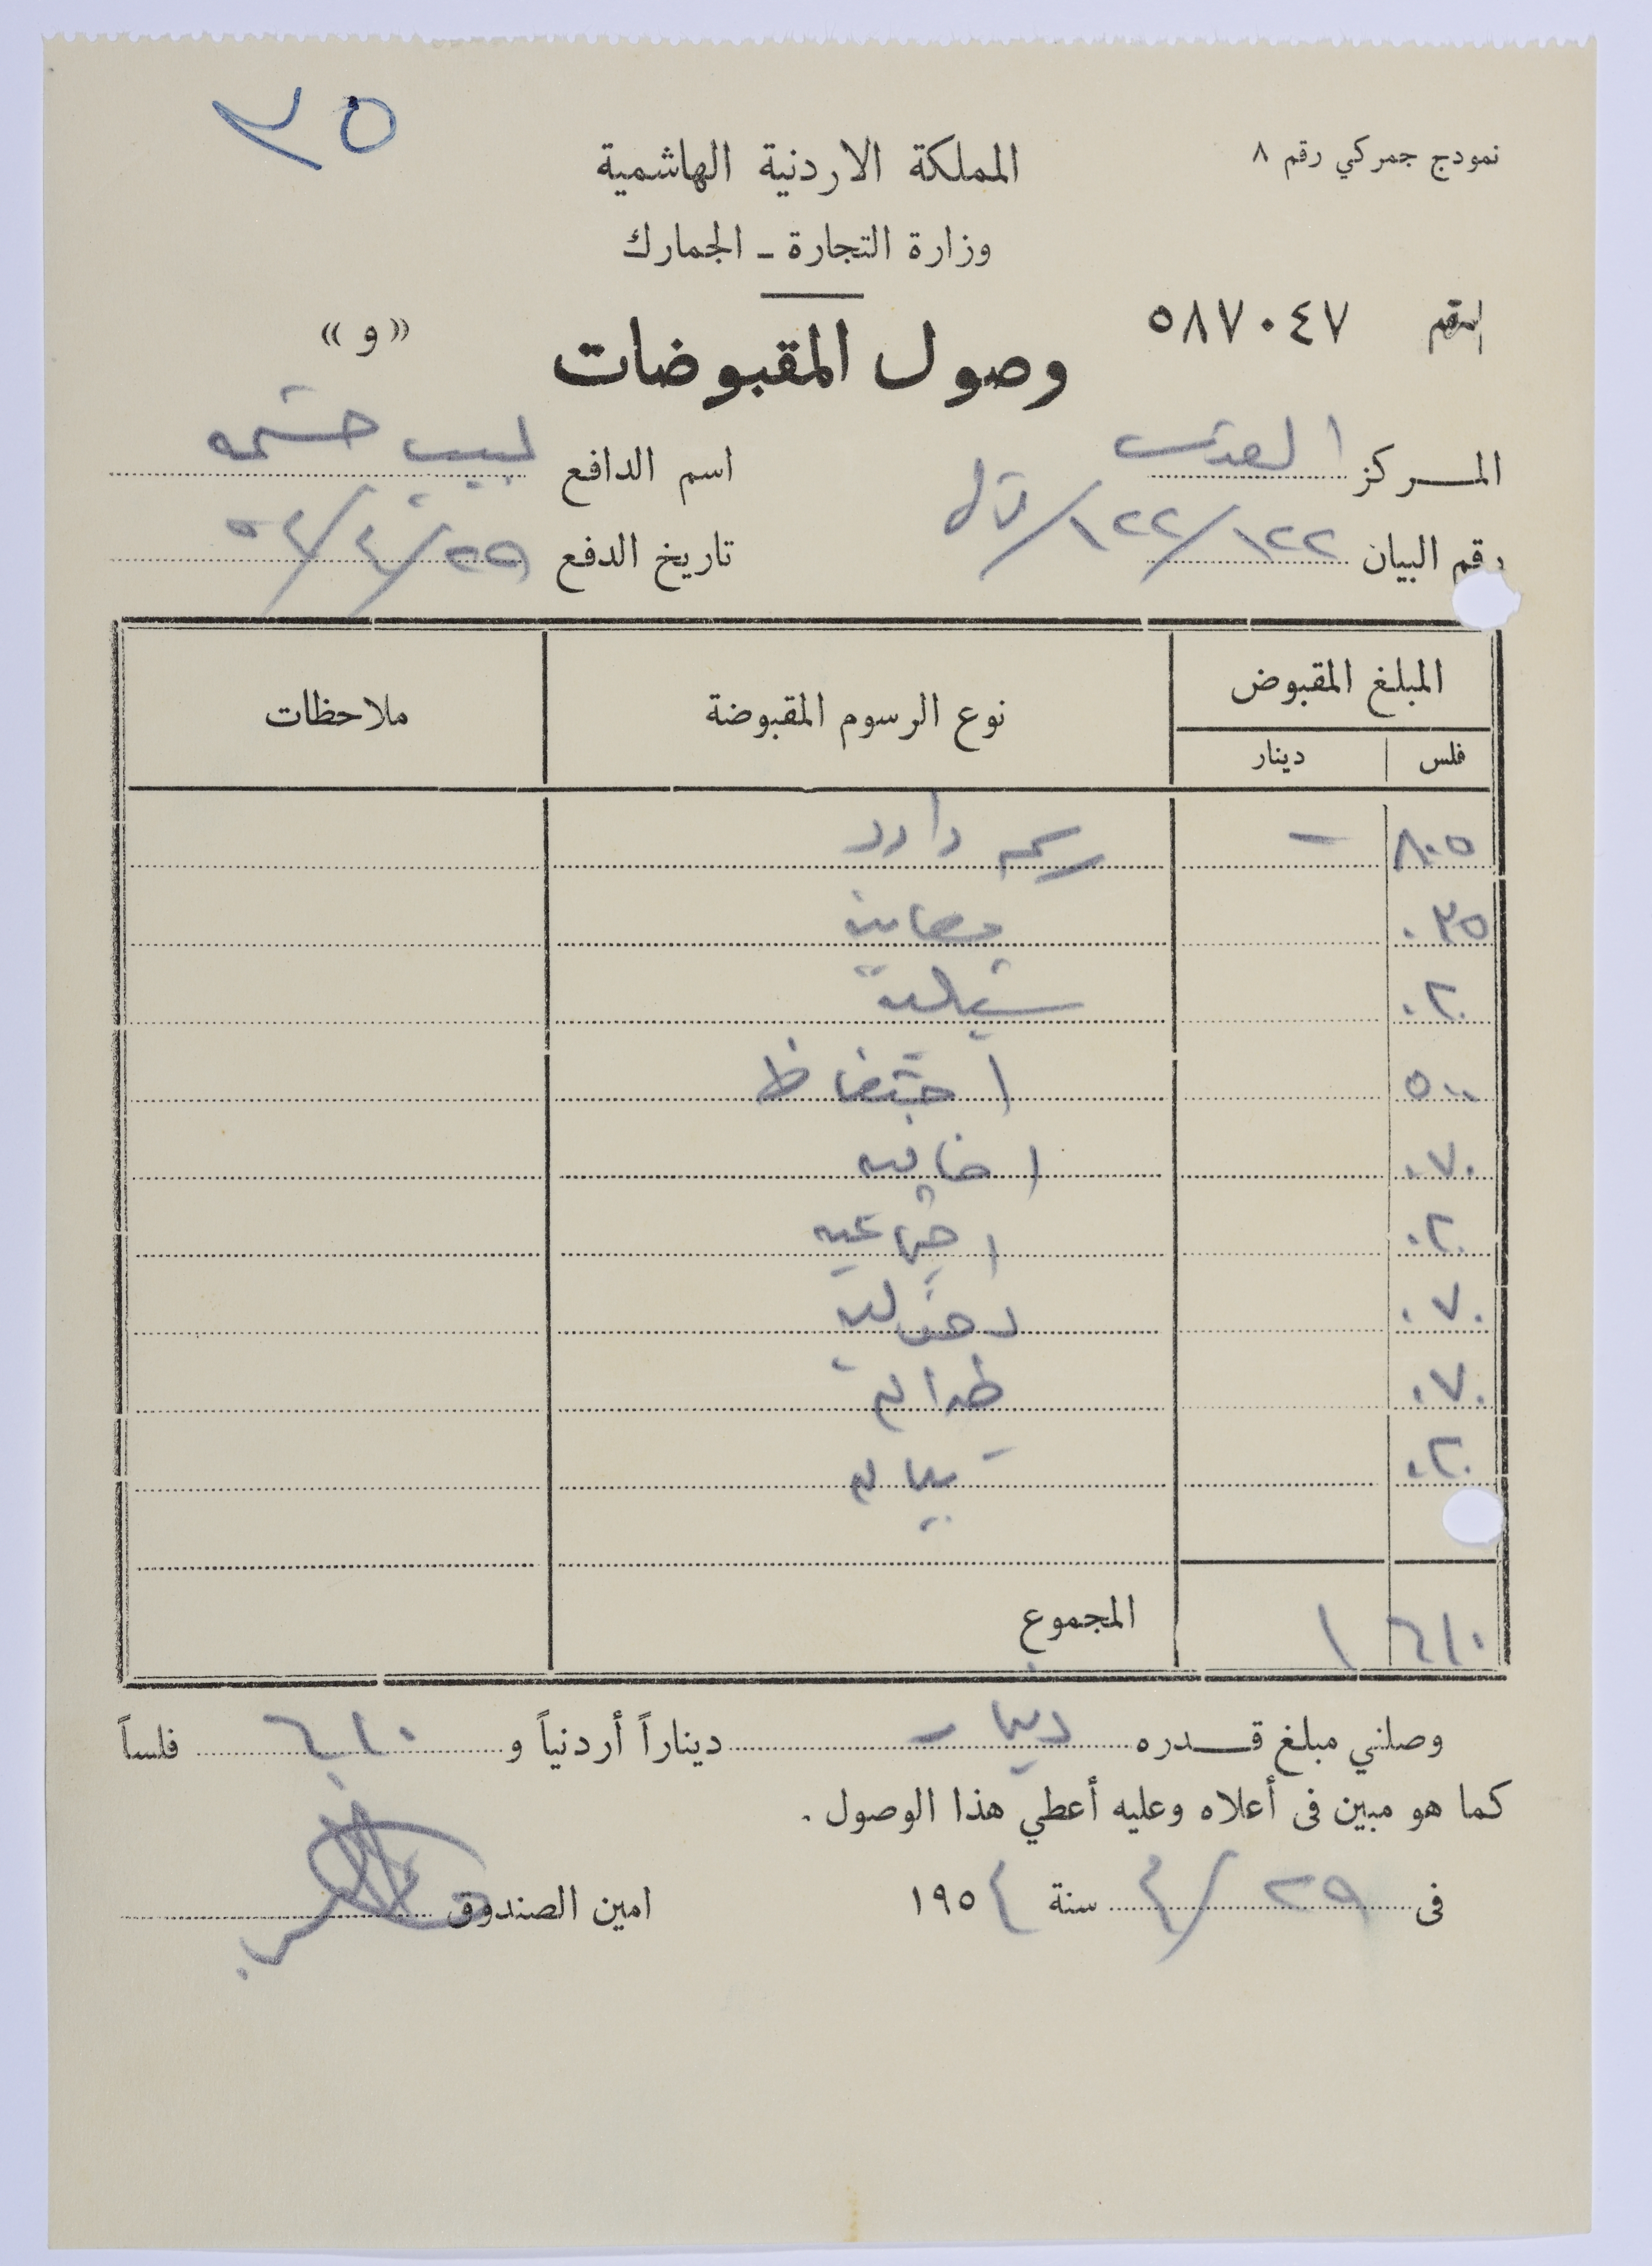 ٢٥
نمودج جمركي رقم ٨
المملكة الاردنية الهاشمية
وزارة التجارة ـ الجمارك
الرقم ٥٨٧٠٤٧
وصول المقبوضات
«و»
المركز القدس
اسم الدافع لبيب حشمه
رقم البيان ١٢٢/١٢٢/
تاريخ الدفع ٢٩/٤/٥٤
المبلغ المقبوض
نوع الرسوم المقبوضة
ملاحظات
فلس دينار
٨٠٥ – رسم وارد
٠٢٥ معاينة
٠٢٠
٥٠٠ احتفاظ
٠٧٠ اضافيه
٠٢٠ اجتماعيه
٠٧٠ دخوليه
٠٧٠ طوابع
٠٢٠ بيان
٦١٠ ١ المجموع
وصلني مبلغ قدره دينار ديناراً أردنياً و ٦١٠ فلساً
كما هو مبين فى أعلاه وعليه أعطي هذا الوصول .
فى ٢٩/٤ سنة ١٩٥٤
امين الصندوق